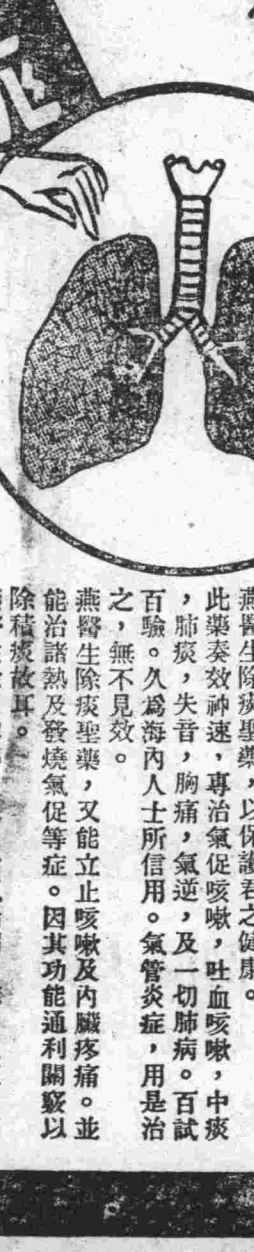 燕醫生除痰聖藥，以保護君之健康。
此藥奏效神速，專治氣促咳嗽，吐血咳嗽，中痰
，肺痰，失音，胸痛，氣逆，及一切肺病。百試
百驗。久爲海內人士所信用。氣管炎症，用是治
之，無不見效。
燕醫生除痰聖藥，又能立止咳嗽及內臟疼痛。並
能治諸熱及發燒氣促等症。因其功能通利關竅以
除積痰故耳。